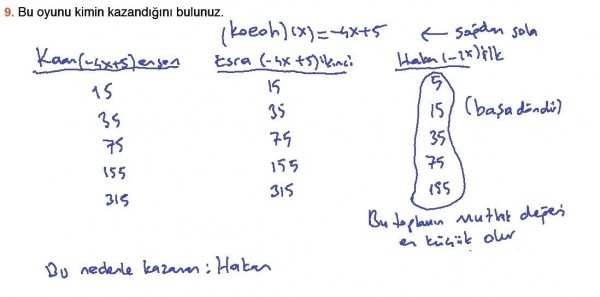 9. Bu oyunu kimin kazandığını bulunuz.
(koeoh)(x)=-4x+5 ← sağdan sola
Kaan(-4x+5) en son Esra (-4x+5) ikinci Hakan (-2x) ilk
15 15 5
35 35 15 (başa döndü)
75 75 35
155 155 75
315 315 155
Bu toplamın mutlak değeri
en küçük olur
Bu nedenle kazanan: Hakan